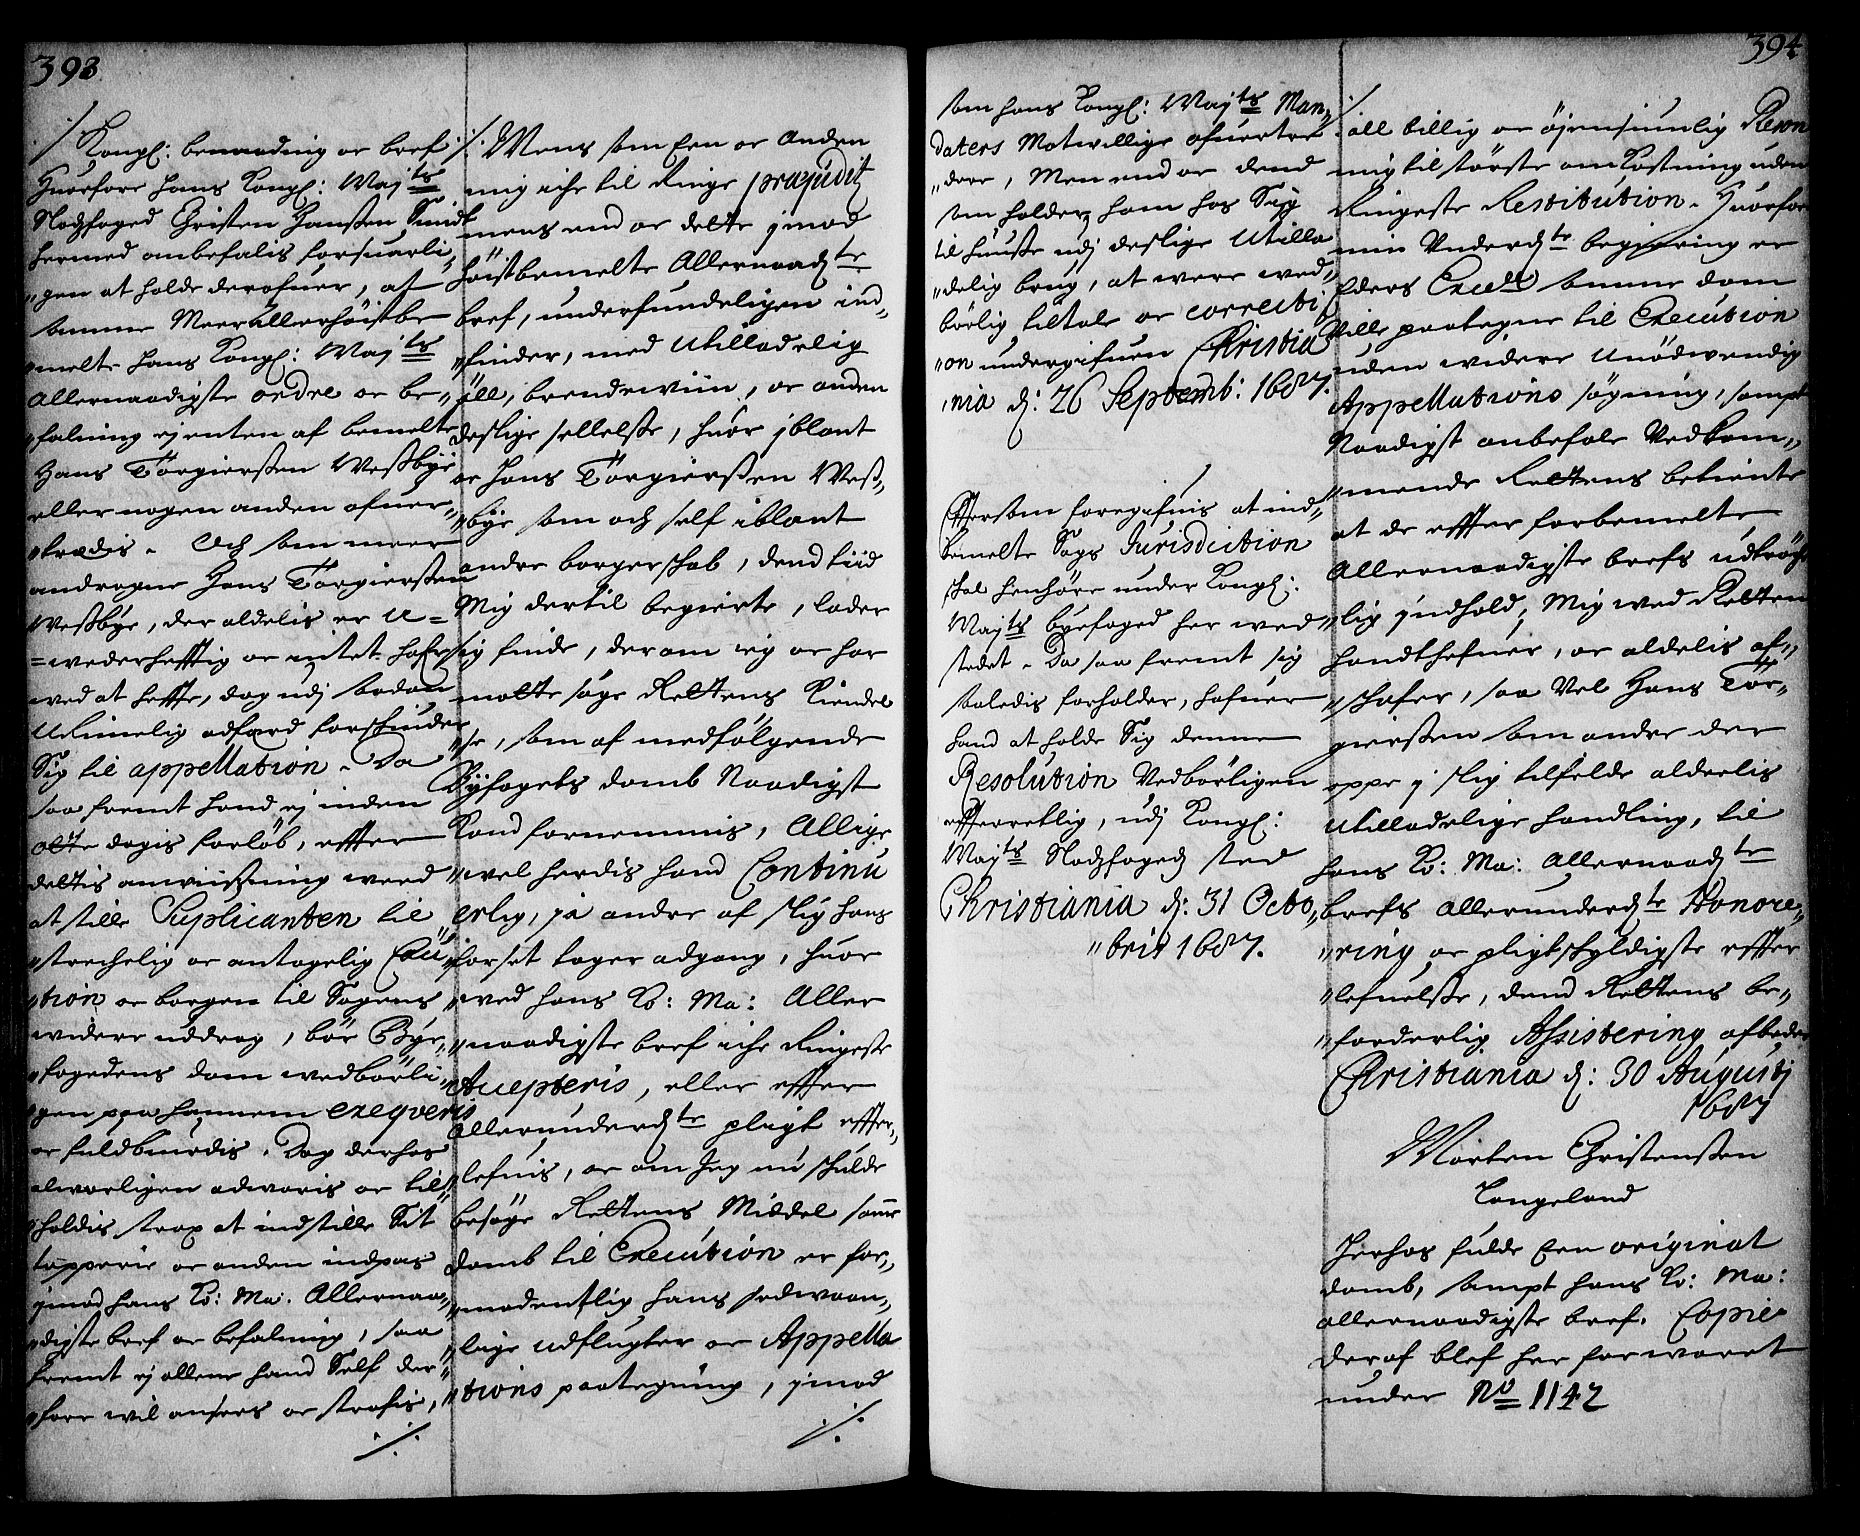 393
./. Kongl: benaading oc bref
Huorfore hans Kongl: Mayts
Slodzfoged Christen Hanssen Smidt
hermed anbefalis forsuarli,,
,,gen at holde derofuer, at
samme Meerallerhöistbe
,,melte hans Kongl: Mayts
Allernaadigste ordre oc be,,
,,falning ej enten af bemelte
Hans Törgierssen Wessbye
eller nogen anden ofuer,,
,,trædis. Och som meer
andragne Hans Törgierssen
Wessbye, der aldelis er U=
=wederhefftig oc intet hafer
wed at heffte, dog udj sodan
Urimelig adfærd forskiuder
Sig til appellation. Da
saa fremt hand ej inden
otte dagis forlöb, effter
dettis anwiissning weed
at stille Suplicanten til
,,strechelig oc antagelig Cau
,,tion oc borgen til Sagens
widere uddrag, bör Bye,,
,,fogedens dom wedbörli,,
,,gen paa hannem exeqveris
oc fuldbiurdis. Dog derhos
alvorligen advaris oc til,,
,,holdis strax at indstille Sit
tapperie oc anden indpas
ymod hans Ko: Ma: Allernaa,,
,,digste bref oc befalning, saa
fremt ej allene hand Self der,,
,,fore wil ansees oc strafis,
./.
./. Mens som Een oc Anden
mig iche til Ringe præjuditz
mens end oc dette ymod
höistbemelte Allernaadte
bref, underfundeligen ind,,
,,finder, med Utilladelig
öll, brendewiin, oc anden
deslige sellelsse, huor jblant
oc Hans Törgierssen Wess,,
,,bye som och self iblant
andre borgerskab, dend tiid
Mig dertil begierte, lader
sig finde, derom ieg oc har
motte söge Rettens Kiendel
,,se, som af medfölgende
Byfogets domb Naadigst
Kand fornemmis, Allige
,,wel herdis hand Continu
erlig, ja andre af slig hans
forset tager adgang, huor
,,ved hans Ko: Ma: Aller
,,naadigste bref iche Ringeste
Acepteris, eller effter
allerunderdte pligt effter,,
,,lefuis, oc om Jeg nu skulde
besöge Rettens Middel samme
domb til Execution er for,,
,,modentlig hans sedvaan,,
,,lige udflugter oc Appella
,,tions paategning, ymod
./.
som hans Kongl: Mayts Man,,
daters Motwillige ofuertræ
,,dere, Men end oc dend
som holder ham hos Sig
til huusse udj deslige Utilla
,,delig brug, at were wed,,
börlig tiltale oc correcti
,,on undergifuen Christia
,,nia d: 26 Septemb: 1687.
Effersom foregifuis at ind,,
bemelte Sags Jurisdiction
skal henhöre under Kongl:
Mayts byefoged her wed
stedet. Da saa fremt sig
saledis forholder, hafuer
hand at holde Sig denne
Resolution Vedbörligen
effterretlig, udj Kongl:
Mayts Slodzfogedz sted
Christiania d: 31 Octo,,
,,bris 1687.
394
./. all billig oc öjensiunlig Reson
mig til störste omkostning uden
Ringeste Restitution. Huorfor
min Underdte begiering er
Eders Excelle samme dom
wille paategne til Execution
uden widere Unödwendig
Appellations sögning, sampt
Naadigst anbefale Vedkom,,
,,mende Rettens betiente
at de effter forbemelte
Allernaadigste brefs udtröche
,,lig yndhold, Mig wed Retten
handthefuer, oc aldelis af,,
,,skafer, saa Vel Hans Tör,,
gierssen som andre der
eppe j slig tilfelde alderlis
Utilladelige handling, til
hans Ko: Ma: Allernaadte
brefs allerunderdte Honore,,
,,ring oc pligtskyldigste effter
,,lefuelsse, dend Rettens be,,
,,forderlig Assistering afbeder
Christiania d: 30 Augustj
1687
Morten Christenssen
Langeland
Herhos fulde Een original
domb, sampt hans Ko: Ma:
allernaadigste bref. Copie
deraf blef her forwaret
under No 1142